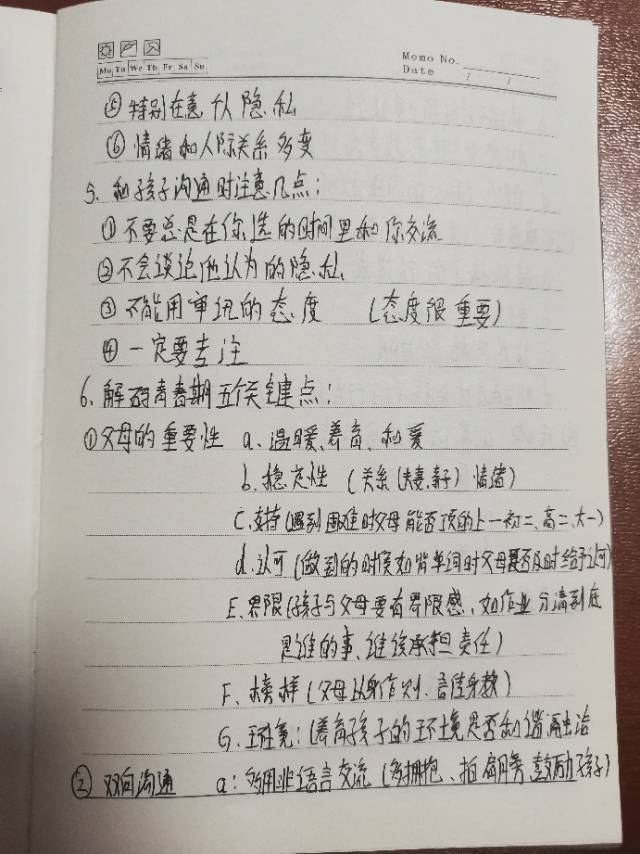 Memo No.
Mo Tu We Th Fr Sa Su
Date / /
⑤ 特别在意个人隐私
⑥ 情绪和人际关系多变
5、和孩子沟通时注意几点：
① 不要总是在你选的时间里和你交流
② 不会谈论他认为的隐私
③ 不能用审讯的态度 （态度很重要）
④ 一定要专注
6、解码青春期五个关键点：
① 父母的重要性 a、温暖、养育、和爱
b、稳定性（关系（夫妻、亲子）情绪）
C、支持（遇到困难时父母能否顶的上一初二、高二、大一）
d、认可（做到的时候如背单词时父母是否及时给予认可）
E、界限（孩子与父母要有界限感，如作业分清到底
是谁的事、谁该承担责任）
F、榜样（父母以身作则、言传身教）
G、环境：（养育孩子的环境是否和谐融洽
② 双向沟通 a：多用非语言交流（多拥抱、拍肩膀、鼓励孩子）